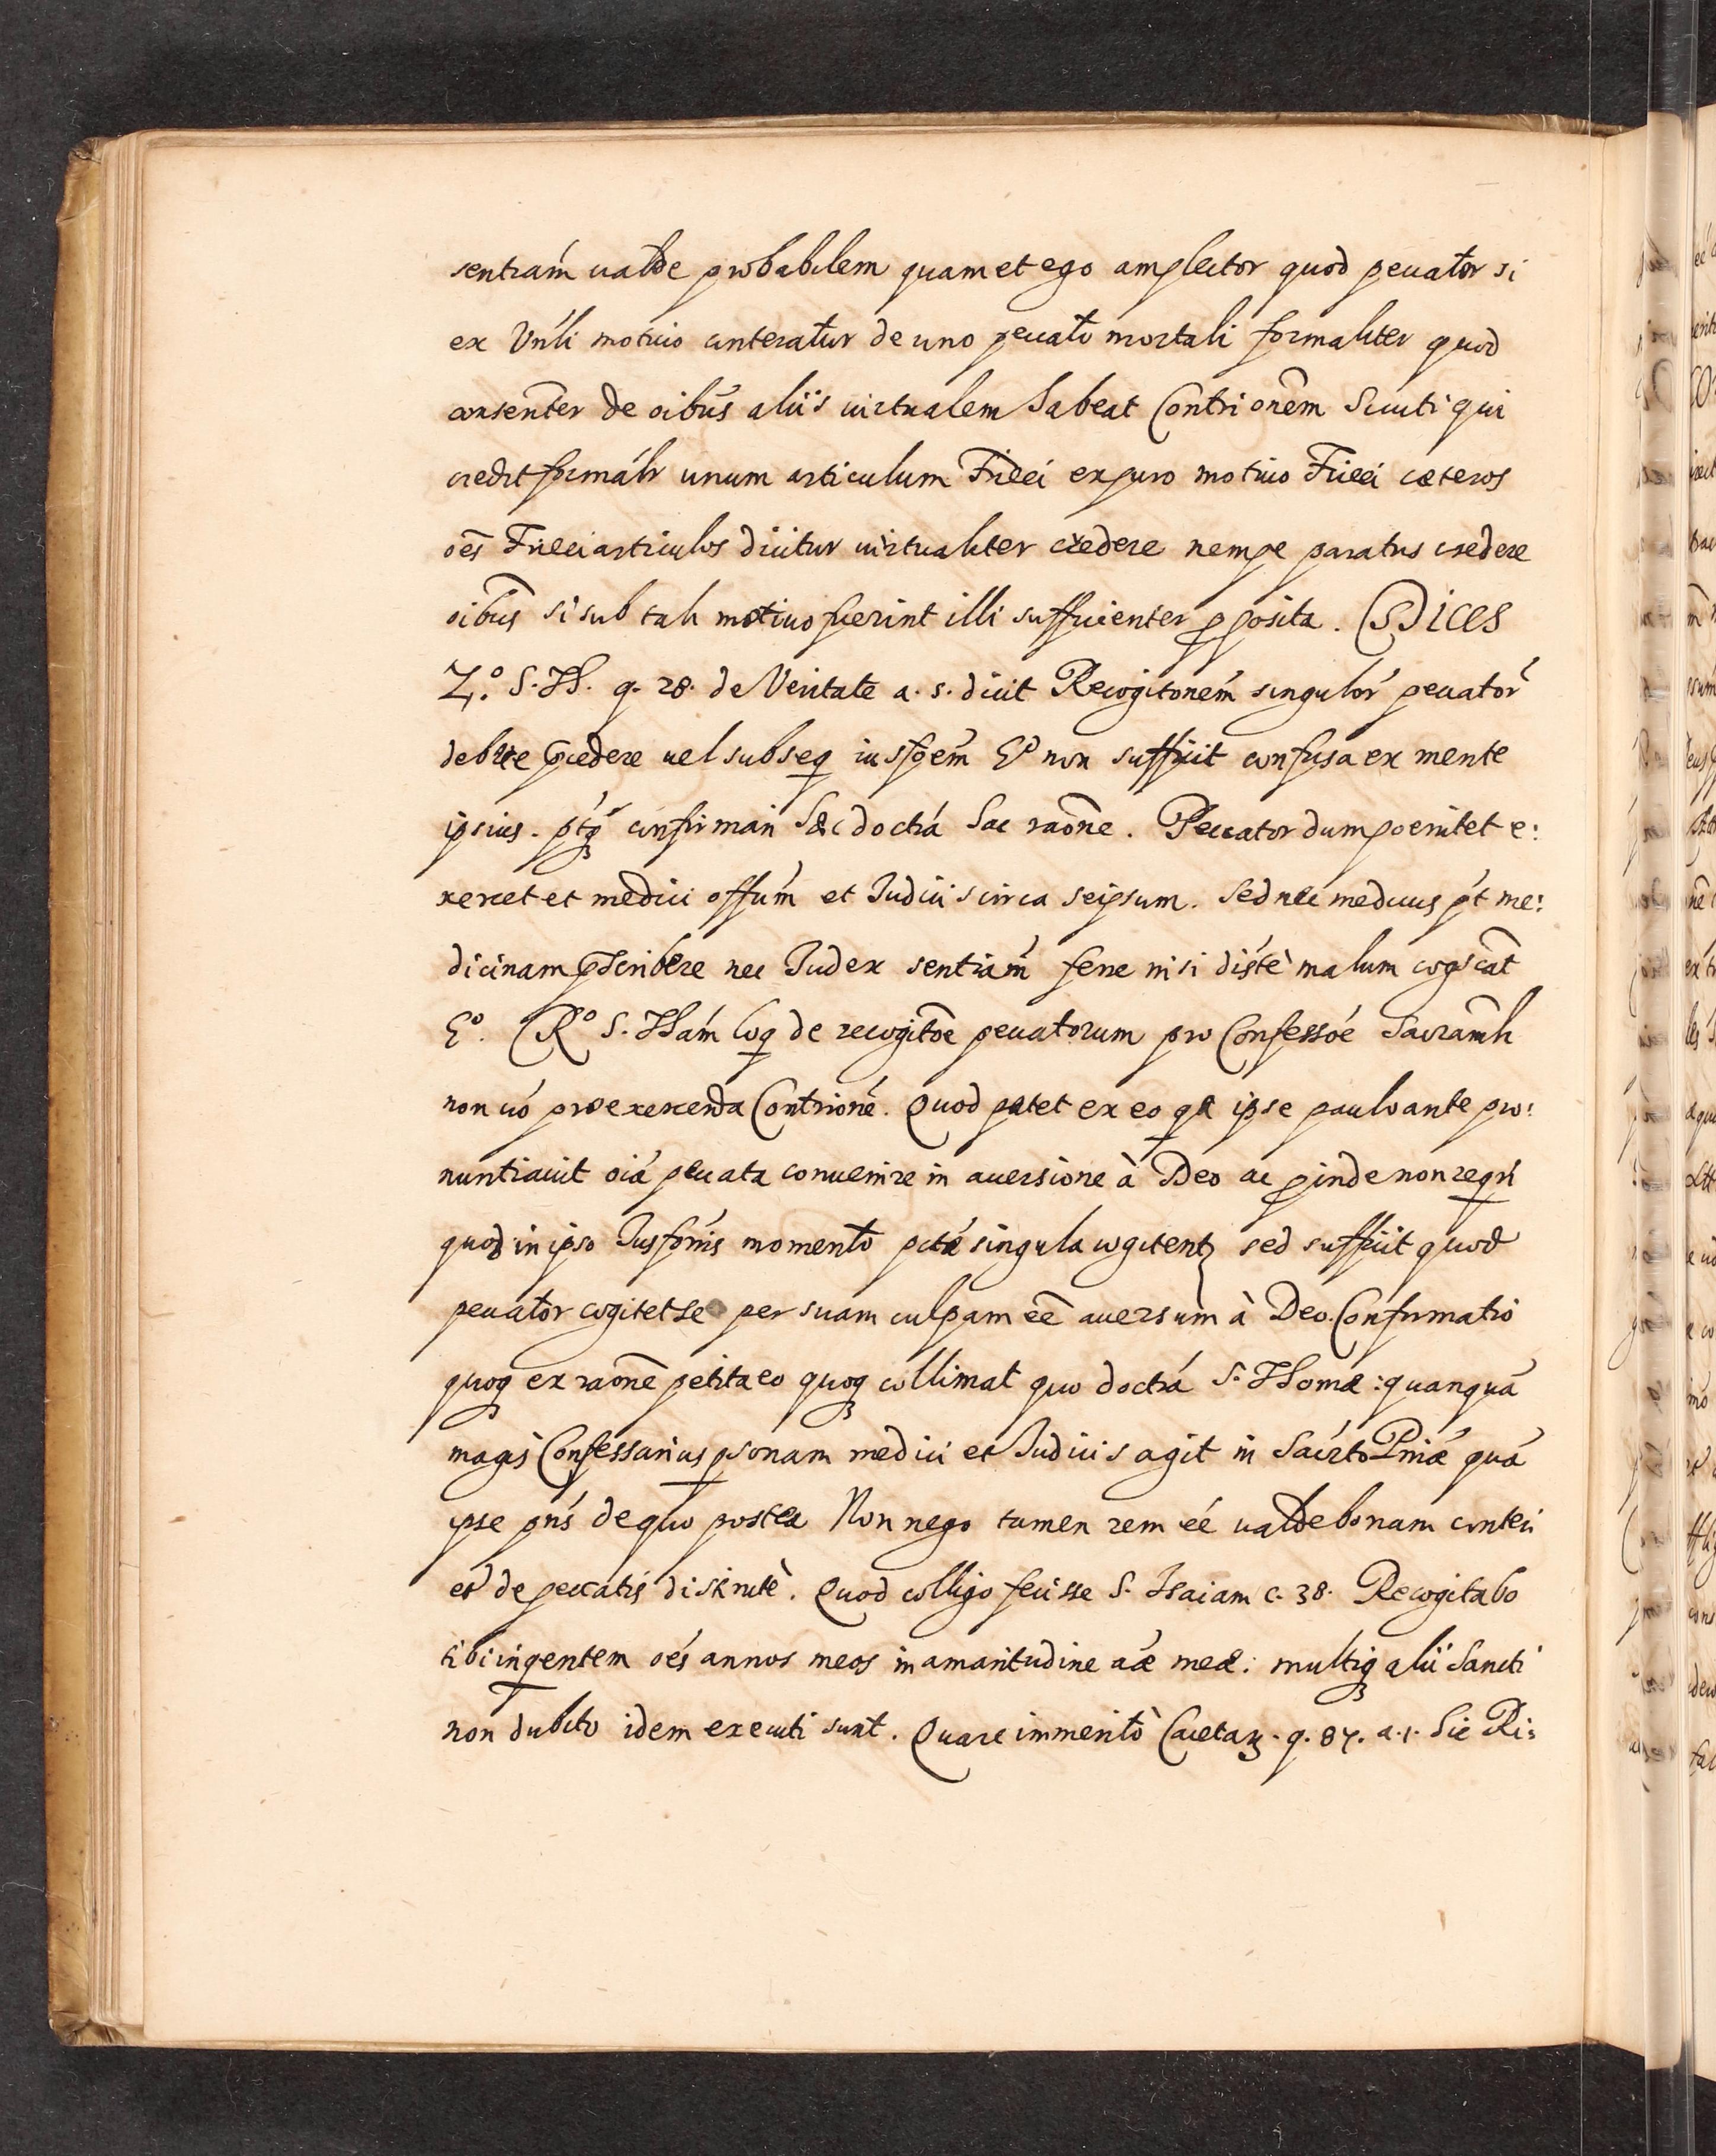 sentiam̃ ualde probabilem quam et ego amplector quod peccator si
ex Vñli motiuo conteratur de uno peccato mortali formaliter quod
consenter de oibus aliis uirtualem habeat Contrionem Sicuti qui
credit formalr unum articulum Fidei ex puro motiuo Fidei cæteros
oẽs Fidei articulos dicitur uirtualiter credere nempe paratus credere
oibus si sub tali motiuo fuerint illi sufficienter pposita. Dices
2.º S. Th. q. 28. de Veritate a. 5. dicit Recogitonem singulor peccator
debere pcedere uel subseq iusfoem Eº non sufficit confusa ex mente
ipsius. ptq confirmari hæc doctra hac raone. Peccator dum poenitet e:
xercet et medici offum et Iudicis circa seipsum. Sed nec medicus pt me:
dicinam pscribere nec Iudex sentiam ferre nisi distè malum cogscat
Eº. Rº S. Tham loq de recogitoe peccatorum pro Confessoe Sacramli
non uó pro exercenda Contrione. Quod patet ex eo qa ipse paulo ante pro:
nuntiauit oia peccata conuenire in auersione à Deo ac pinde non requi
quod in ipso Iusfonis momento pctã singula cogitent sed sufficit quod
peccator cogitet se per suam culpam eẽ auersum à Deo. Confirmatio
quoq ex raone petita eo quoq collimat quo doctra S. Thomæ: quanquã
magis Confessarius psonam medici et Iudicis agit in Sacrto Pniæ quã
ipse pns de quo postea Non nego tamen rem eé ualde bonam conteri
et de peccatis distinctè. Quod colligo fecisse S. Isaiam c. 38. Recogitabo
tibi inquentem oés annos meos in amaritudine aæ meæ: multiq alii Sancti
non dubito idem executi sunt. Quare immeritò Caietan. q. 87. a. 1. hic Ri: